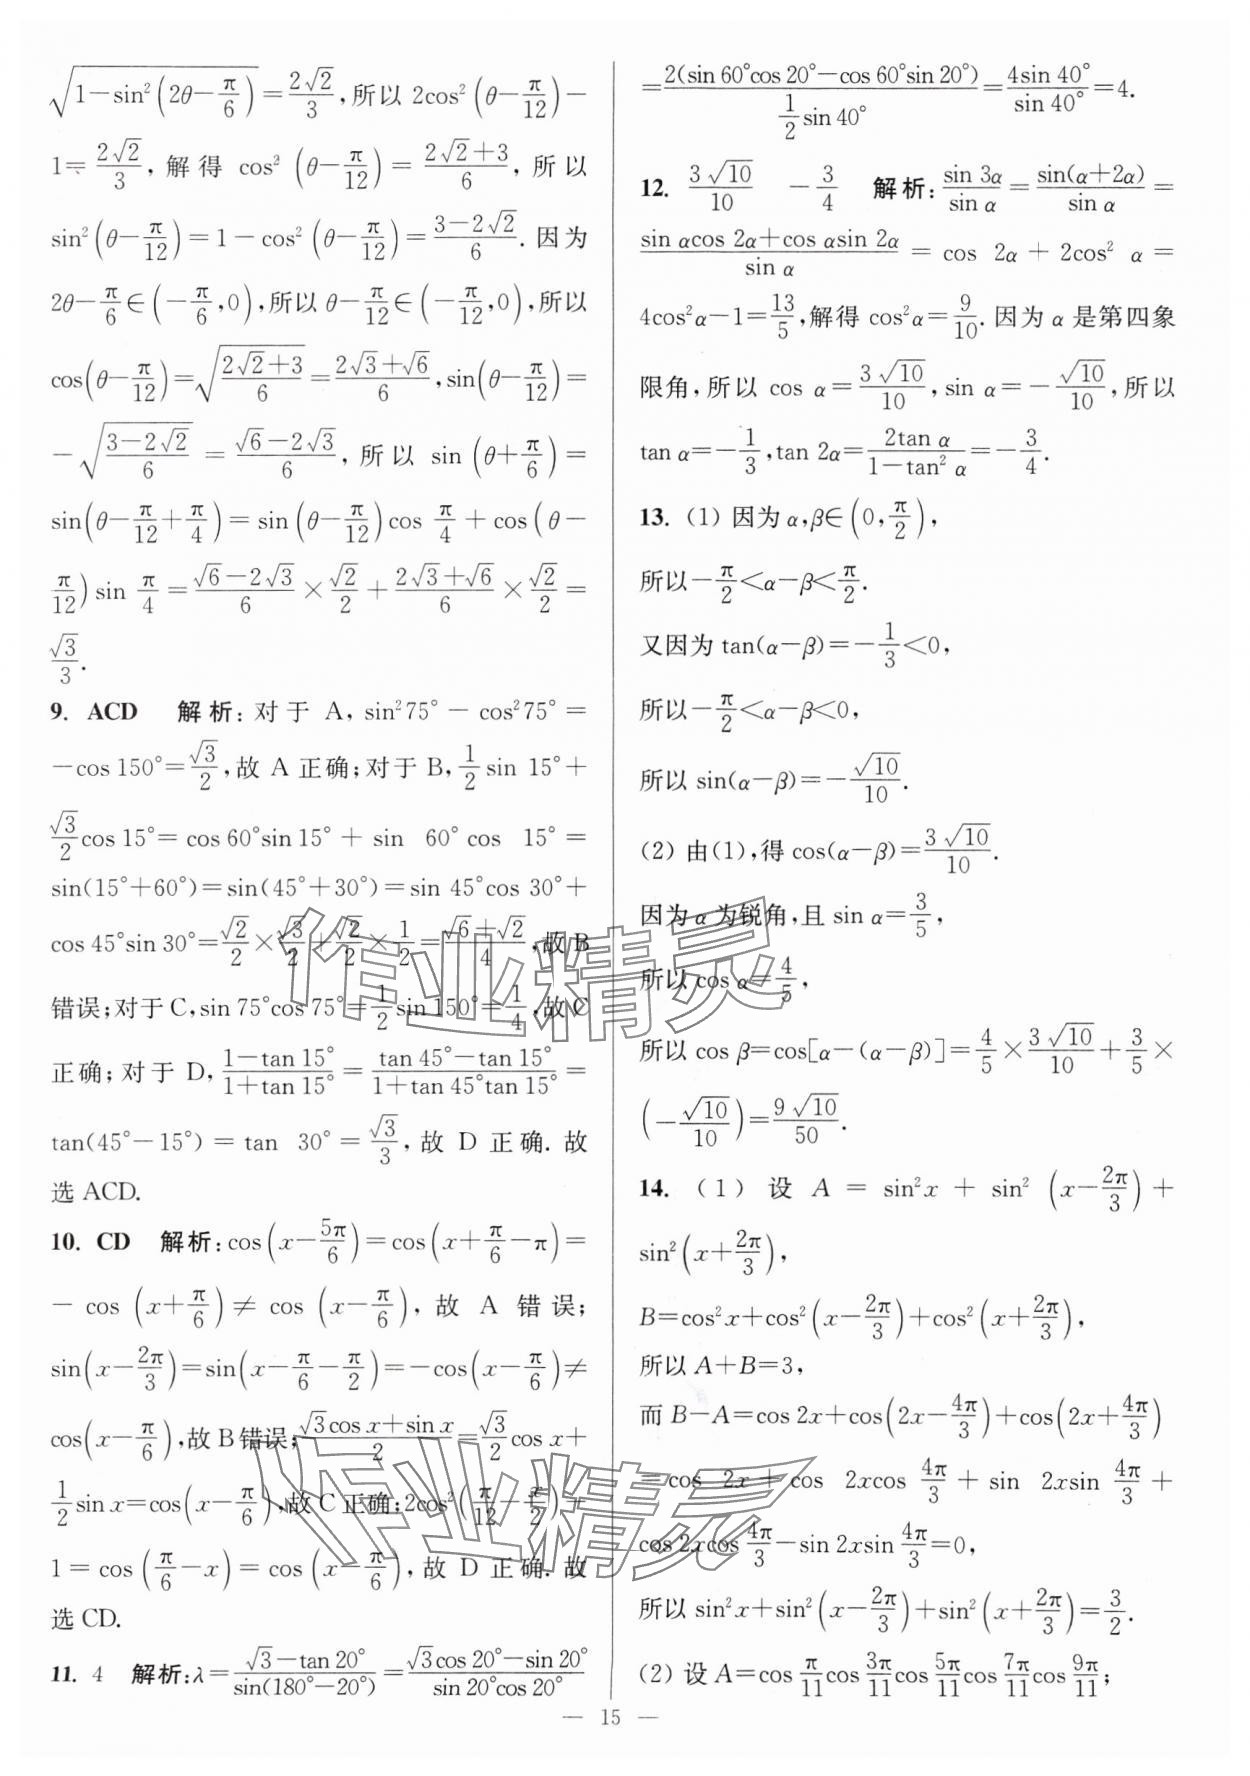 √(1−sin²(2θ−π/6))=2√2/3,所以 2cos²(θ−π/12)−
1=2√2/3,解得 cos²(θ−π/12)=(2√2+3)/6,所以
sin²(θ−π/12)=1−cos²(θ−π/12)=(3−2√2)/6.因为
2θ−π/6∈(−π/6,0),所以θ−π/12∈(−π/12,0),所以
cos(θ−π/12)=√((2√2+3)/6)=(2√3+√6)/6,sin(θ−π/12)=
−√((3−2√2)/6)=(√6−2√3)/6,所以 sin(θ+π/6)=
sin(θ−π/12+π/4)=sin(θ−π/12)cos π/4+cos(θ−
π/12)sin π/4=(√6−2√3)/6×√2/2+(2√3+√6)/6×√2/2=
√3/3.
9. ACD 解析:对于 A,sin²75°−cos²75°=
−cos 150°=√3/2,故 A 正确;对于 B,1/2 sin 15°+
√3/2 cos 15°=cos 60°sin 15°+sin 60°cos 15°=
sin(15°+60°)=sin(45°+30°)=sin 45°cos 30°+
cos 45°sin 30°=√2/2×√3/2+√2/2×1/2=(√6+√2)/4,故 B
错误;对于 C,sin 75°cos 75°=1/2 sin 150°=1/4,故 C
正确;对于 D,(1−tan 15°)/(1+tan 15°)=(tan 45°−tan 15°)/(1+tan 45°tan 15°)=
tan(45°−15°)=tan 30°=√3/3,故 D 正确.故
选 ACD.
10. CD 解析:cos(x−5π/6)=cos(x+π/6−π)=
−cos(x+π/6)≠cos(x−π/6),故 A 错误;
sin(x−2π/3)=sin(x−π/6−π/2)=−cos(x−π/6)≠
cos(x−π/6),故 B 错误;(√3cos x+sin x)/2=√3/2 cos x+
1/2 sin x=cos(x−π/6),故 C 正确;2cos²(π/12−x/2)+
1=cos(π/6−x)=cos(x−π/6),故 D 正确.故
选 CD.
11. 4 解析:λ=(√3−tan 20°)/sin(180°−20°)=(√3cos 20°−sin 20°)/(sin 20°cos 20°)
=2(sin 60°cos 20°−cos 60°sin 20°)/(1/2 sin 40°)=4sin 40°/sin 40°=4.
12. 3√10/10 −3/4 解析:sin 3α/sin α=sin(α+2α)/sin α=
(sin αcos 2α+cos αsin 2α)/sin α=cos 2α+2cos² α=
4cos²α−1=13/5,解得 cos²α=9/10.因为 α 是第四象
限角,所以 cos α=3√10/10,sin α=−√10/10,所以
tan α=−1/3,tan 2α=2tan α/(1−tan² α)=−3/4.
13. (1) 因为 α,β∈(0,π/2),
所以−π/2<α−β<π/2.
又因为 tan(α−β)=−1/3<0,
所以−π/2<α−β<0,
所以 sin(α−β)=−√10/10.
(2) 由(1),得 cos(α−β)=3√10/10.
因为 α 为锐角,且 sin α=3/5,
所以 cos α=4/5,
所以 cos β=cos[α−(α−β)]=4/5×3√10/10+3/5×
(−√10/10)=9√10/50.
14. (1) 设 A=sin²x+sin²(x−2π/3)+
sin²(x+2π/3),
B=cos²x+cos²(x−2π/3)+cos²(x+2π/3),
所以 A+B=3,
而 B−A=cos 2x+cos(2x−4π/3)+cos(2x+4π/3)
=cos 2x+cos 2xcos 4π/3+sin 2xsin 4π/3+
cos 2xcos 4π/3−sin 2xsin 4π/3=0,
所以 sin²x+sin²(x−2π/3)+sin²(x+2π/3)=3/2.
(2) 设 A=cos π/11 cos 3π/11 cos 5π/11 cos 7π/11 cos 9π/11;
— 15 —
作业精灵
作业精灵